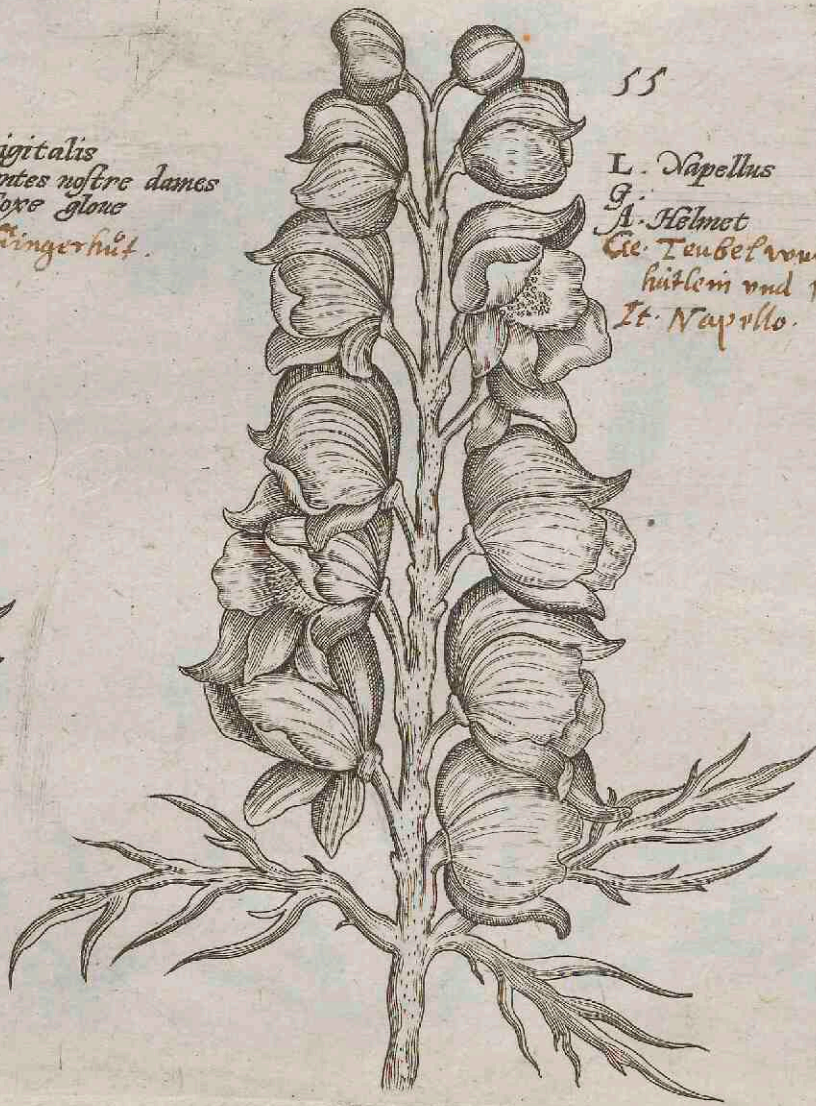 55
igitalis
ntes nostre dames
oxe gloue
Fingerhůt.
L. Napellus
G.
A. Helmet
Ge. Teubelwu
hütlein vnd
It. Napello.